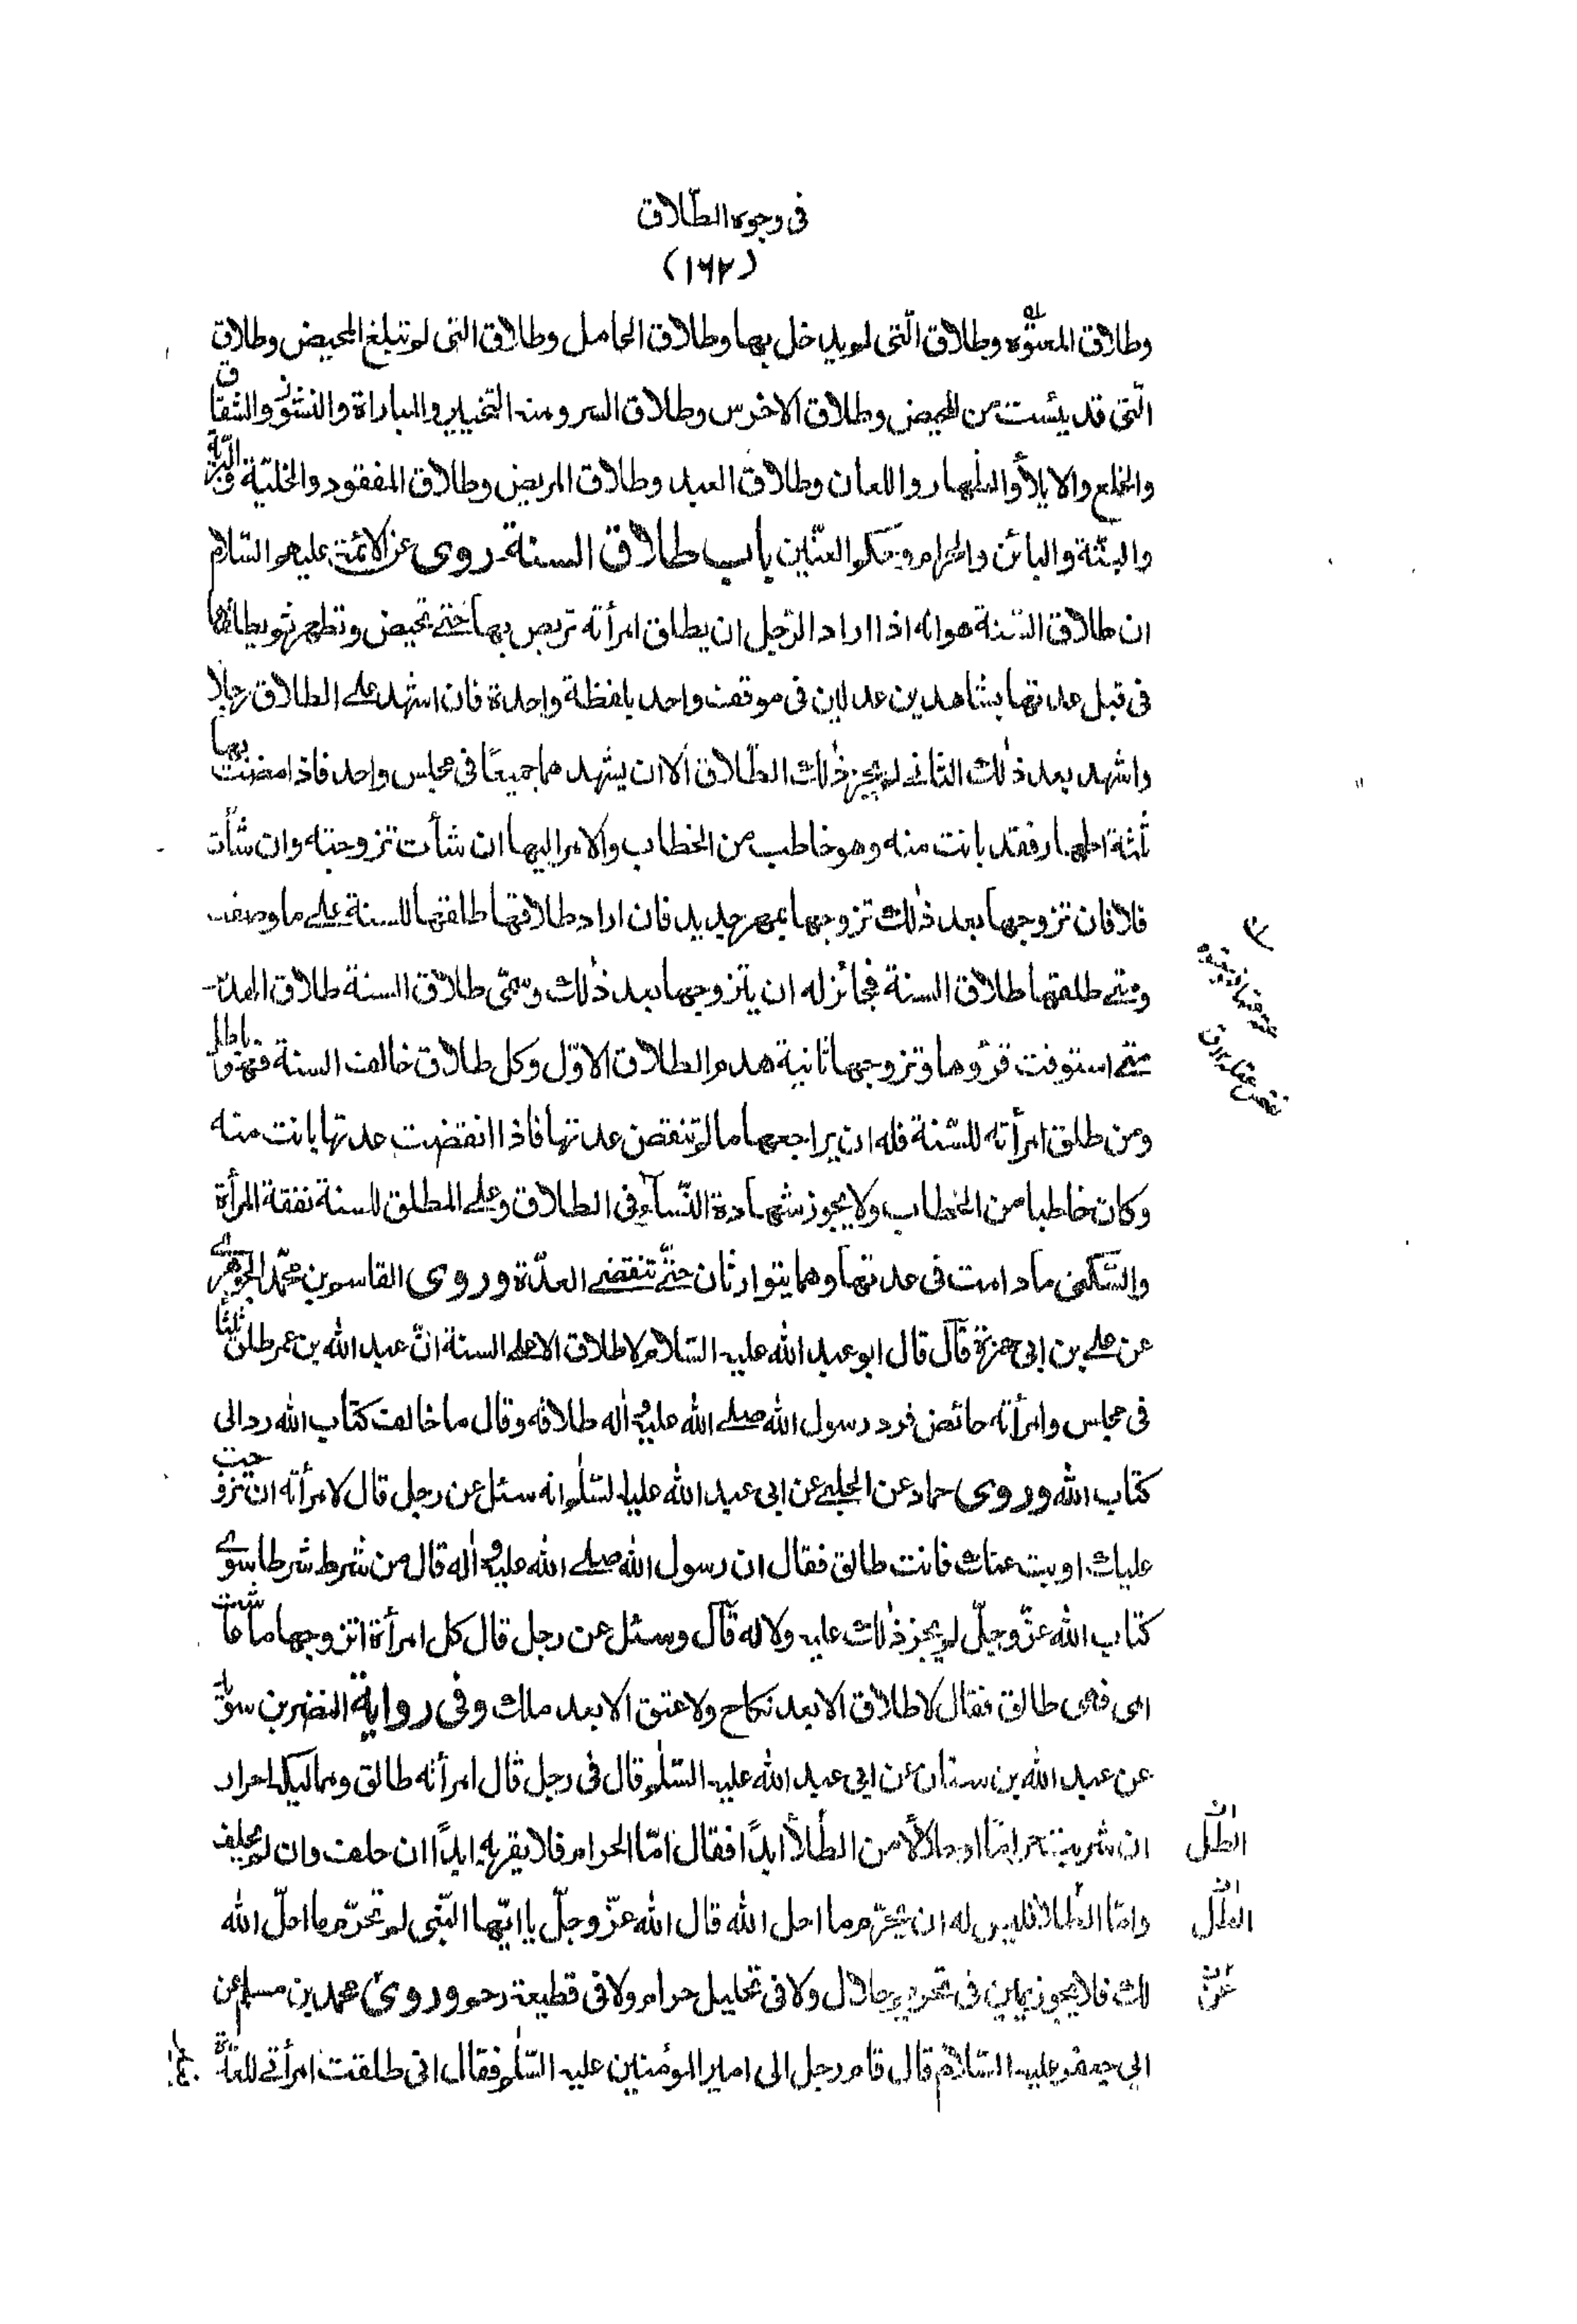 فى وجوه الطّلاق
(١٦٢)
وطلاق المعتوّه وطلاق الّتى لم يدخل بها وطلاق الحامل وطلاق التى لم تبلغ المحيض وطلاق
الّتى قد يئست من المحيض وطلاق الاخرس وطلاق السر ومنه التخيير والمباراة والنشوز والشقاق
والخلع والايلاء والظهار واللعان وطلاق العبد وطلاق المريض وطلاق المفقود والخليّة والبريّة
والبتّة والبائن والحرام وحكم العنّين باب طلاق السنة روى عن الائمّة عليهم السّلام
ان طلاق السّنة هو انه اذا اراد الرّجل ان يطلق امرأته تربص بها حتى تحيض وتطهر ثم يطلقها
فى قبل عدتها بشاهدين عدلين فى موقف واحد بلفظة واحدة فان اشهد على الطلاق رجلا
واشهد بعد ذلك الثانى لم يجز ذلك الطّلاق الا ان يشهدهما جميعًا فى مجلس واحد فاذا مضت بها
ثلثة اطهار فقد بانت منه وهو خاطب من الخطاب والامر اليها ان شأت تزوجته وان شأت
فلا فان تزوجها بعد ذلك تزوجها بمهر جديد فان اراد طلاقها طلقها للسنة على ما وصفت
ومتى طلقها طلاق السنة فجائز له ان يتزوجها بعد ذلك وسمّى طلاق السنة طلاق الهدم
متى استوفت قرؤها وتزوجها ثانية هدم الطلاق الاوّل وكل طلاق خالف السنة فهو باطل
ومن طلق امرأته للسّنة فله ان يراجعها ما لم تنقض عدتها فاذا انقضت عدتها بانت منه
وكان خاطبا من الخطاب ولا يجوز شهادة النّسآء فى الطلاق وعلى المطلق للسنة نفقة المرأة
والسّكنى ما دامت فى عدتها وهما يتوارثان حتّى تنقضى العدّة وروى القاسم بن محمّد الجوهرى
عن على بن ابى حمزة قال قال ابو عبد الله عليه السّلام لا طلاق الا على السنة انّ عبد الله بن عمر طلق ثلثا
فى مجلس وامرأته حائض فرد رسول الله صلى الله عليه واله طلاقه وقال ما خالف كتاب الله رد الى
كتاب الله وروى حماد عن الحلبى عن ابى عبد الله عليه السّلم انه سئل عن رجل قال لامرأته ان تزوجت
عليك او بت عنك فانت طالق فقال ان رسول الله صلى الله عليه واله قال من شرط شرطا سوى
كتاب الله عزّوجلّ لم يجز ذلك عليه ولا له قال وسئل عن رجل قال كل امرأة اتزوجها ما عاشت
امى فهى طالق فقال لا طلاق الا بعد نكاح ولا عتق الا بعد ملك وفى رواية النضر بن سويد
عن عبد الله بن سنان عن ابى عبد الله عليه السّلم قال فى رجل قال امرأته طالق ومماليكه احرار
ان شربت حرامًا او حلالا من الطّلاء ابدًا فقال امّا الحرام فلا يقربه ابدًا ان حلف وان لم يحلف
وامّا الطّلا فليس له ان يحرّم ما احل الله قال الله عزّوجلّ يا ايّها النّبى لم تحرّم ما احلّ الله
لك فلا يجوز يمين فى تحريم حلال ولا فى تحليل حرام ولا فى قطيعة رحم وروى محمد بن مسلم عن
ابى جعفر عليه السّلام قال قام رجل الى امير المؤمنين عليه السّلم فقال انى طلقت امرأتى للعدّة